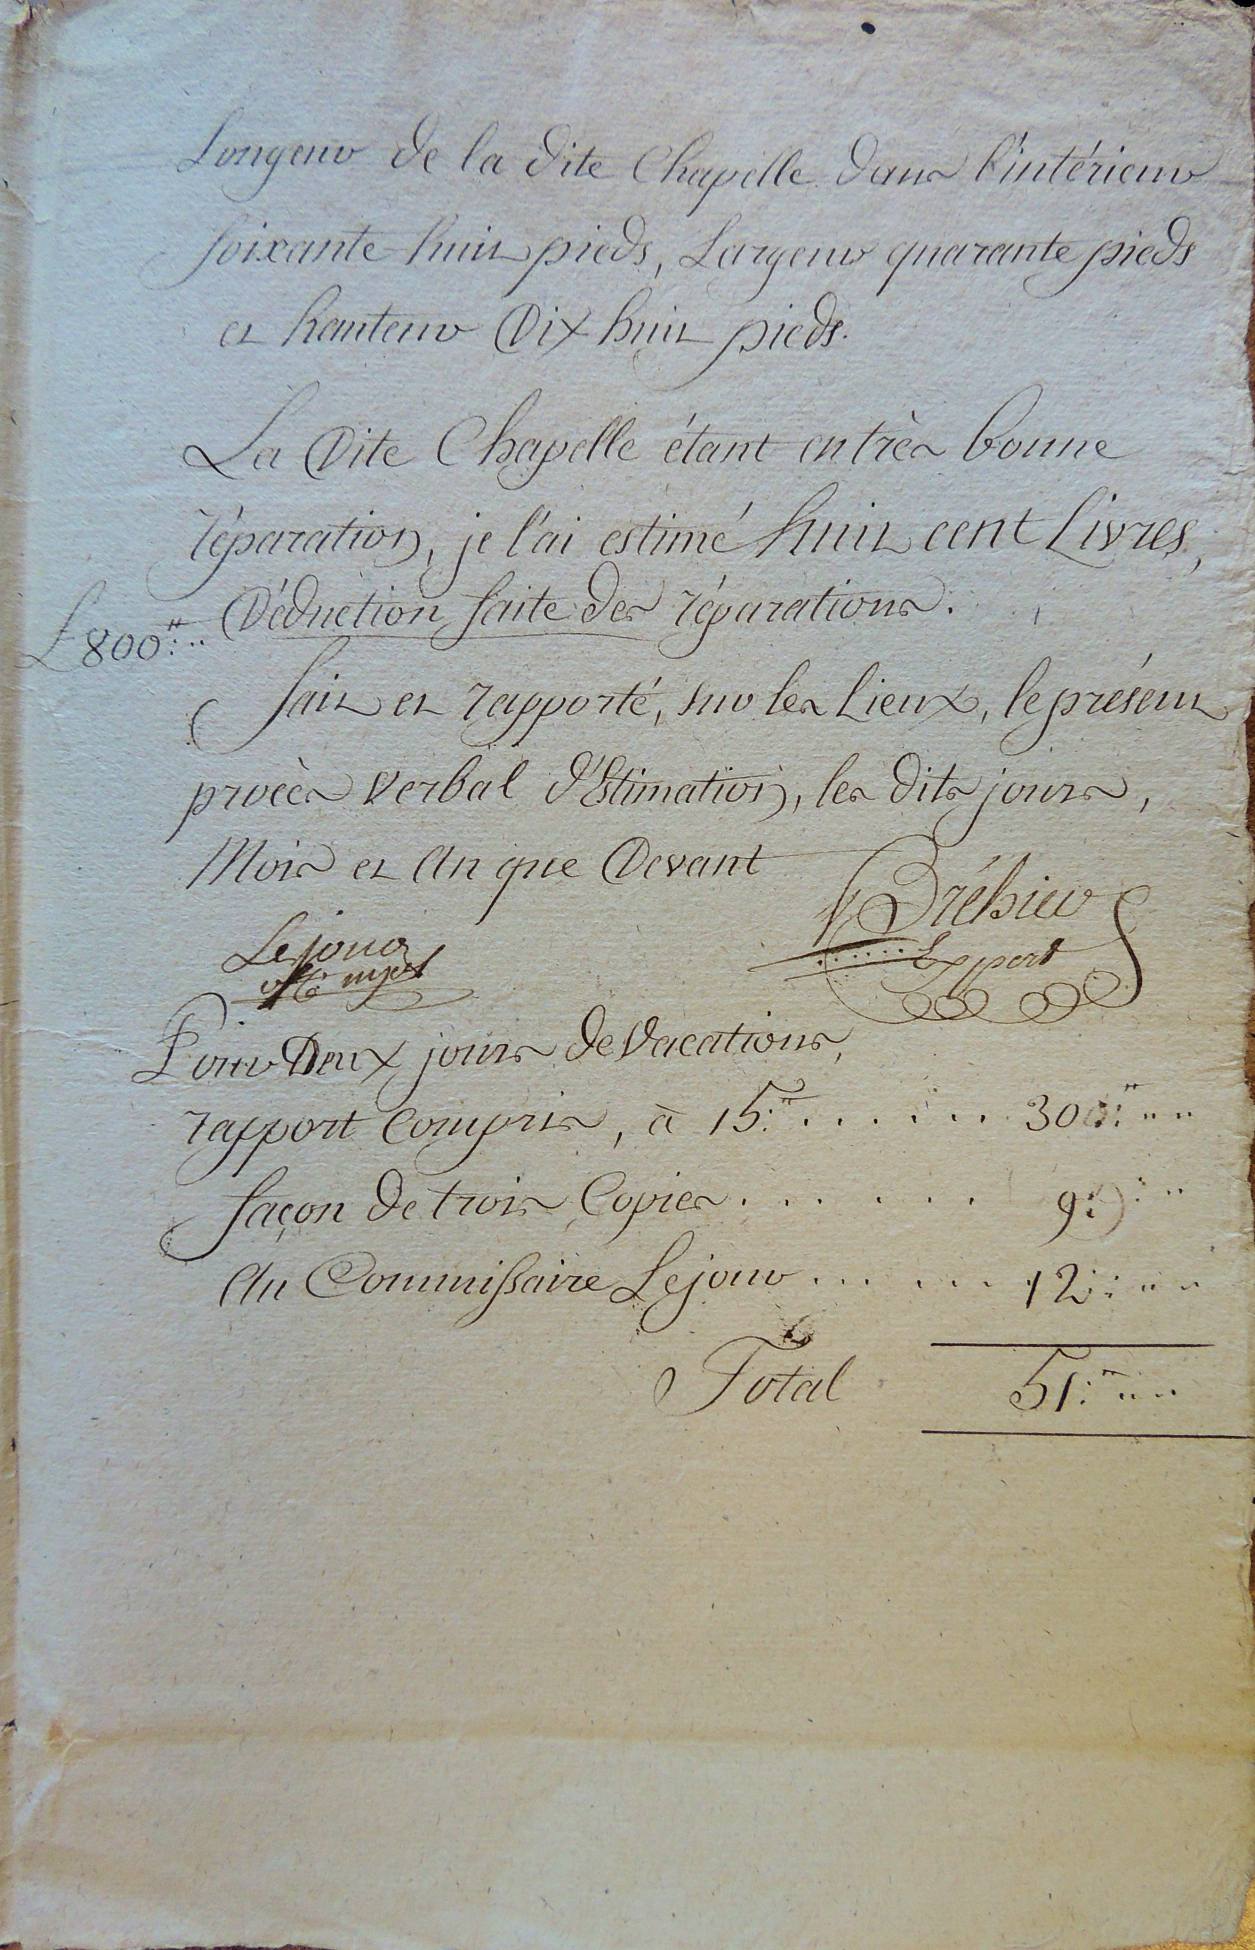 Longeur de la dite Chapelle dans l'intérieur
soixante-huit pieds, Largeur quarante pieds
et hauteur Dix huit pieds.
La Dite Chapelle étant en très bonne
réparation, je l'ai estimé huit cent Livres,
Déduction faite des réparations.
£ 800:"..
fait et rapporté, sur les Lieux, le présent
procès verbal d'Estimation, les dits jours,
Mois et An que Devant
Bréhier
Lejour
Expert
Pour Deux jours de Vacations,
rapport Compris, à 15:" . . . . . . . 30:" " "
façon de trois Copies . . . . . . . 9: " "
Au Commissaire Lejour . . . . . . . 12: " "
Total 51:" " "